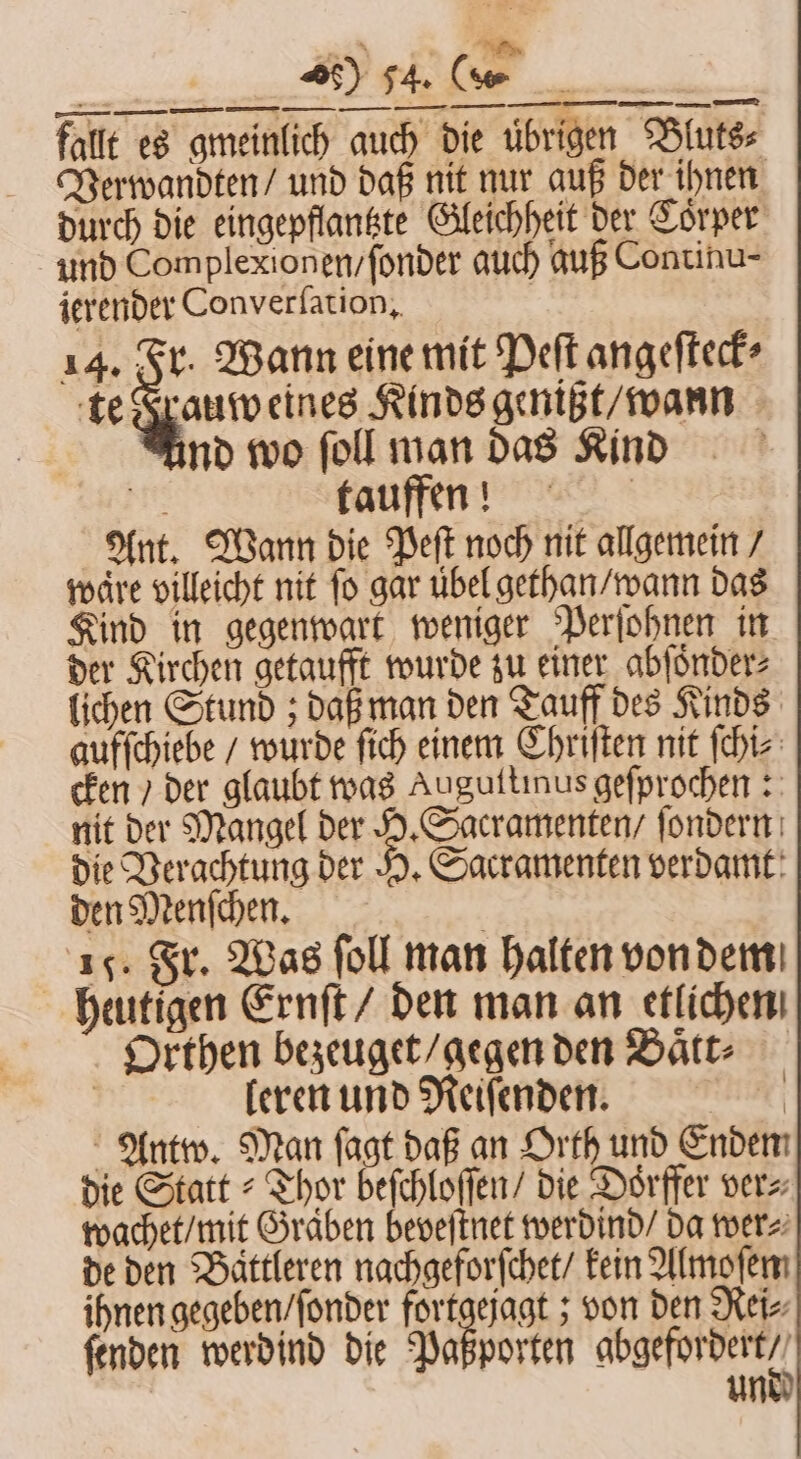 ) 54. (
fallt es gmeinlich auch die uͤbrigen Bluts⸗
Verwandten/ und daß nit nur auß der ihnen
durch die eingepflantzte Gleichheit der Coͤrper
und Complexionen/ſonder auch auß Continu-
ierender Converſation.
14. Fr. Wann eine mit Peſt angeſteck⸗
te Frauw eines Kinds genißt/wann
und wo ſoll man das Kind
tauffen!
Ant. Wann die Peſt noch nit allgemein /
waͤre villeicht nit ſo gar uͤbel gethan/wann das
Kind in gegenwart weniger Perſohnen in
der Kirchen getaufft wurde zu einer abſoͤnder⸗
lichen Stund ; daß man den Tauff des Kinds
aufſchiebe / wurde ſich einem Chriſten nit ſchi⸗
cken / der glaubt was Auguſtinus geſprochen :
nit der Mangel der H. Sacramenten/ ſondern
die Verachtung der H. Sacramenten verdamt
den Menſchen.
15. Fr. Was ſoll man halten von dem
heutigen Ernſt / den man an etlichen
Orthen bezeuget/gegen den Baͤtt⸗
leren und Reiſenden.
Antw. Man ſagt daß an Orth und Enden
die Statt ⸗ Thor beſchloſſen/ die Doͤrffer ver⸗
wachet/mit Graͤben beveſtnet werdind/ da wer⸗
de den Baͤttleren nachgeforſchet/ kein Almoſen
ihnen gegeben/ſonder fortgejagt ; von den Rei⸗
ſenden werdind die Paßporten abgefordert/
und